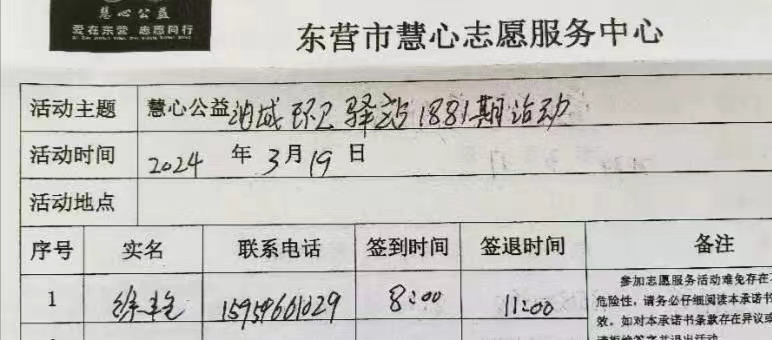 慧心公益
爱在东营 志愿同行
东营市慧心志愿服务中心
活动主题 慧心公益油城环卫驿站1881期活动
活动时间 2024年3月19日
活动地点
序号 实名 联系电话 签到时间 签退时间 备注
1 徐 8:00 11:00
参加志愿服务活动难免存在
危险性,请务必仔细阅读本承诺书
效。如对本承诺书条款存在异议或